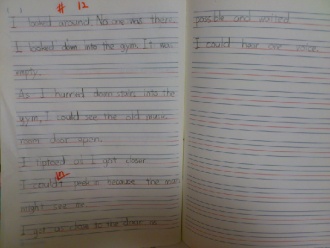 # 12
I looked around. No one was there.
I looked down into the gym. It was
empty.
As I hurried down stairs into the
gym, I could see the old music
room door open.
I tiptoed as I got closer
I couldn't peek in because the man
might see me.
I got as close to the door as
possible and waited
I could hear one voice.